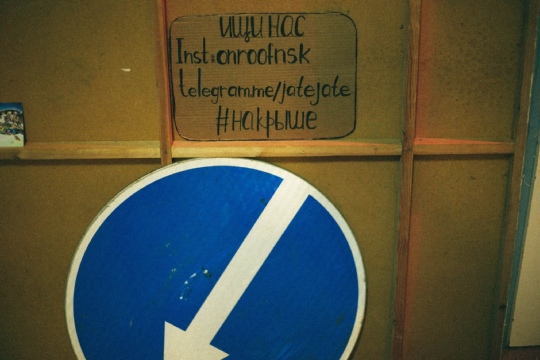 ищи нас
Inst:onroofnsk
telegram.me/jatejate
#накрыше